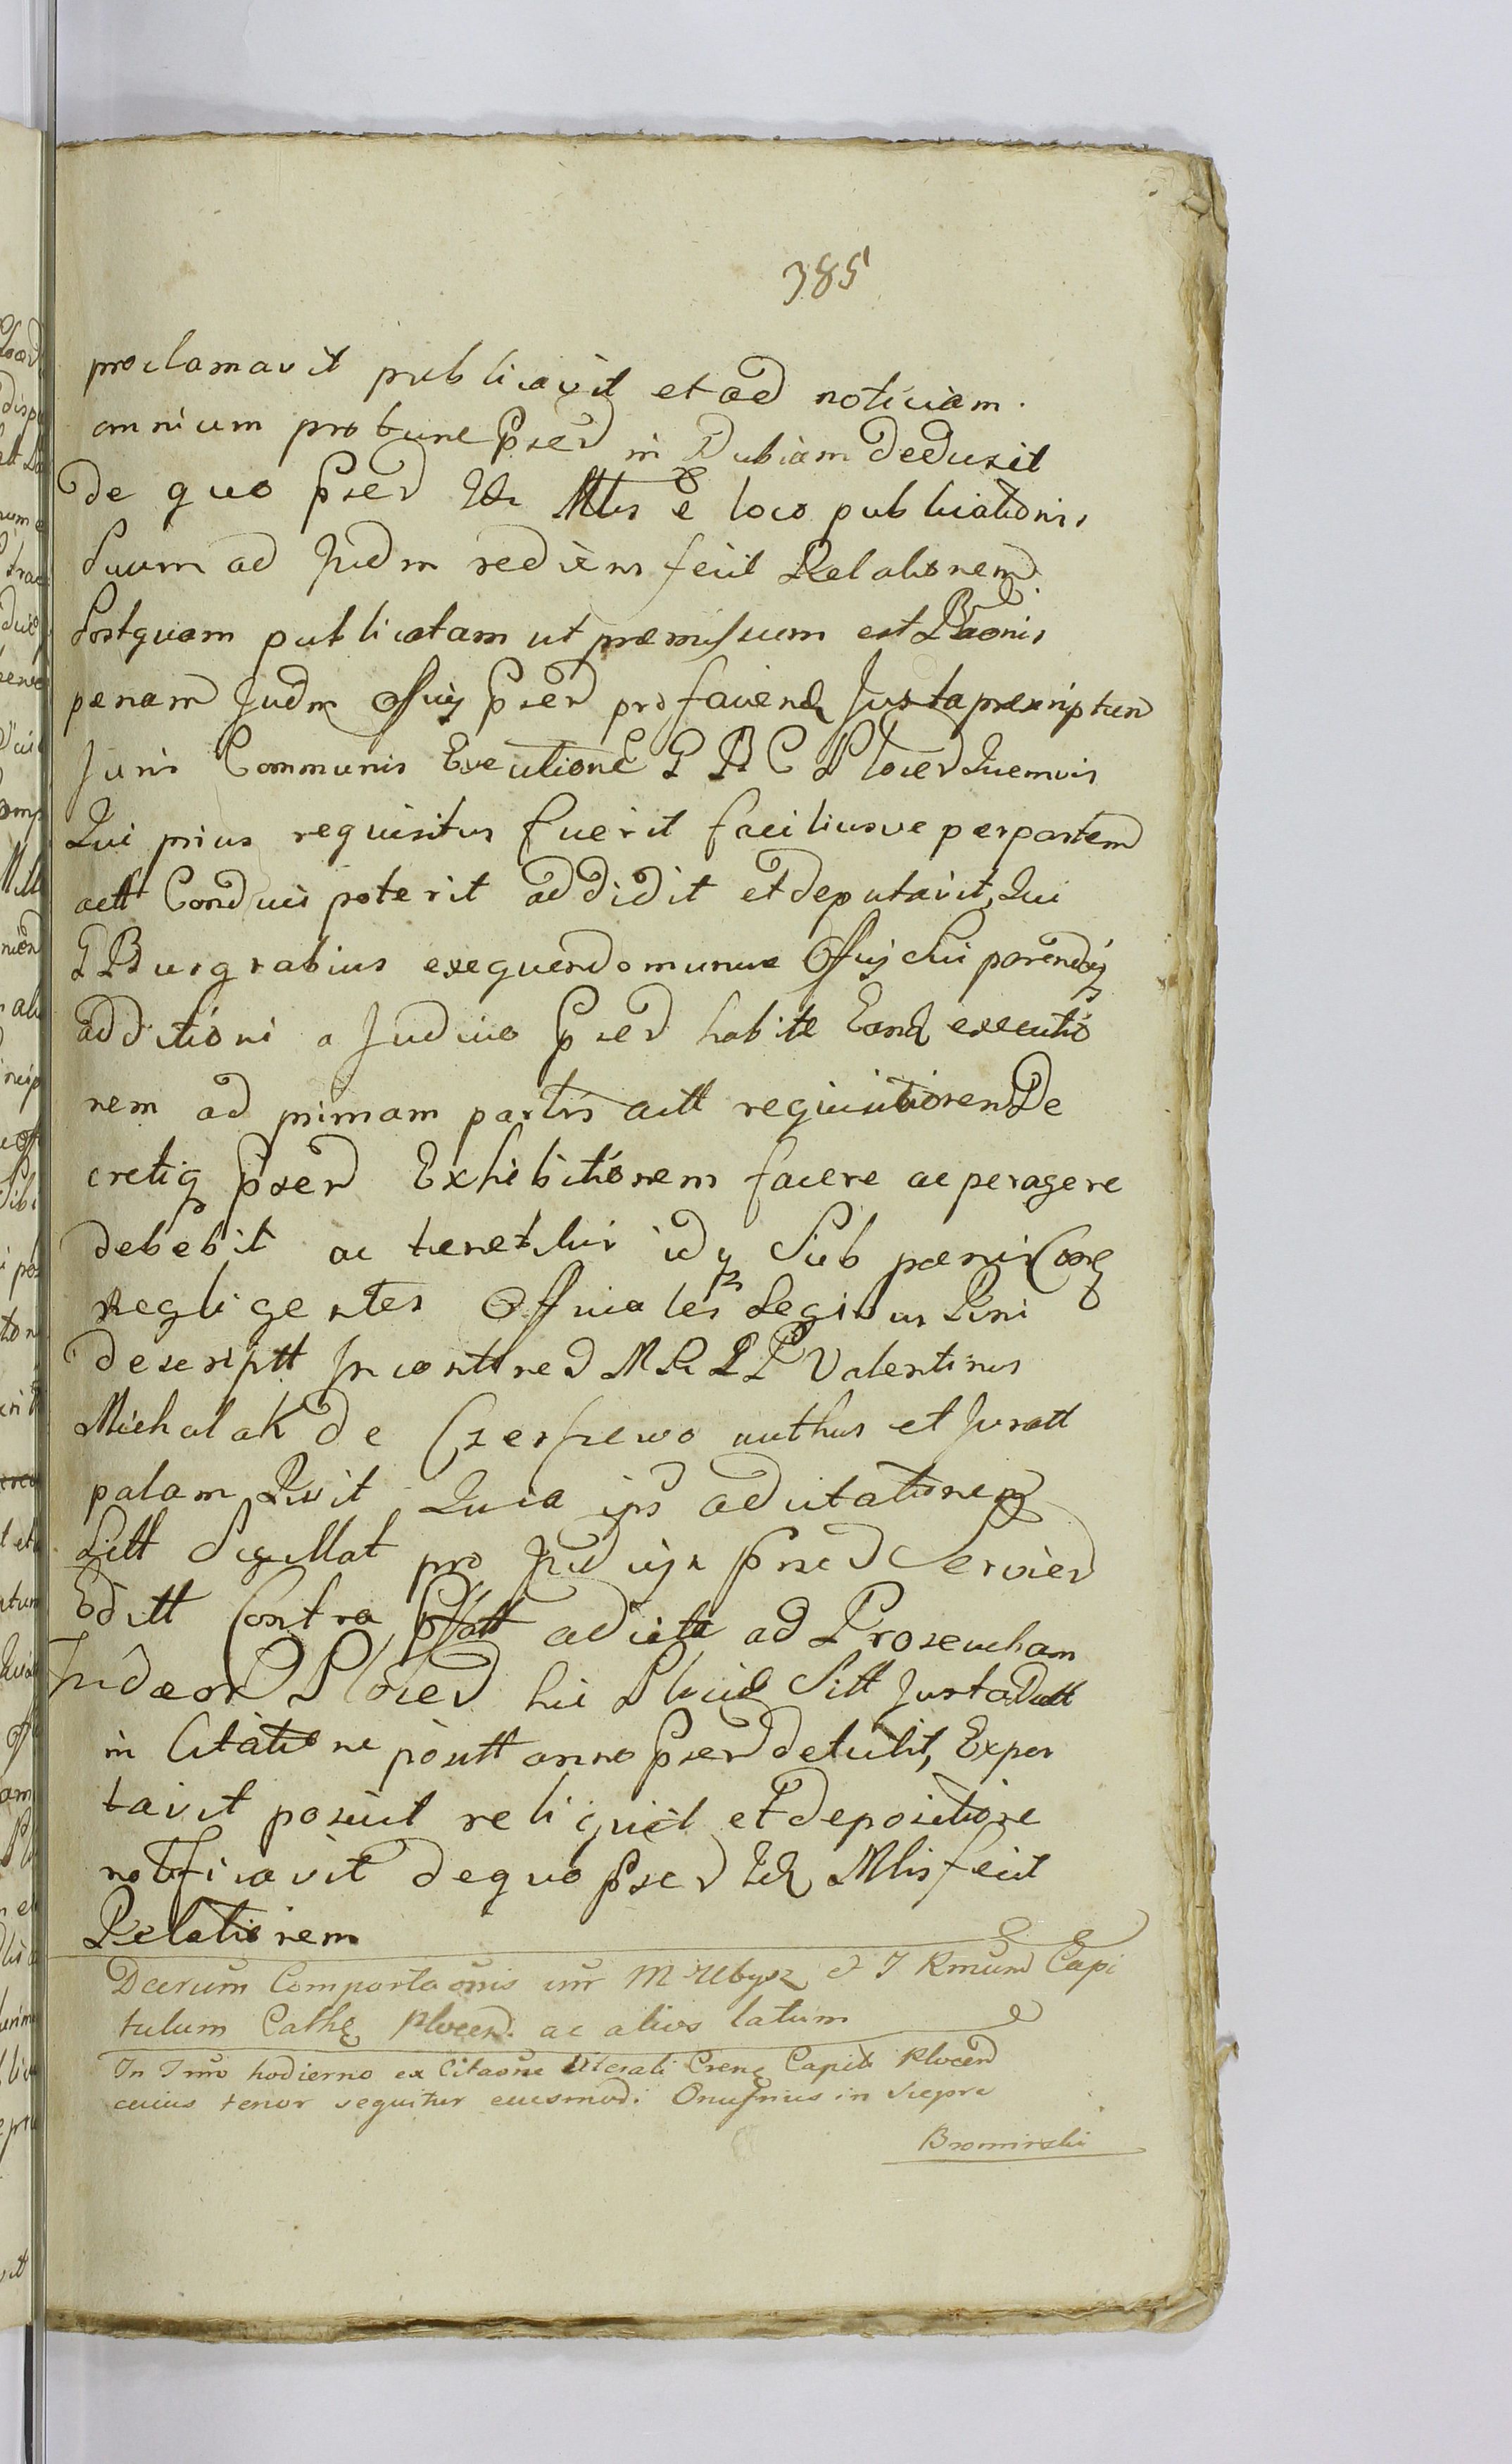 385
proclamavit publicavit et ad noticiam
omnium pro tunc psed in Dubiam deduxit
de quo psed Idr Mlis e loco publicationis
Suum ad Judm rediens fecit Relationem
Postquam publicatam ut præmissum est Baonis
pænam Judm Offij psed pro faciend Juxta præscriptum
Juris Communis Executione G B C Plocen Quemvis
Qui prius requisitus fuerit faciliusve per partem
actt Conduci poterit addidit et deputavit, Qui
G Burgrabius exequendo munus Offij Sui parendoq
additioni a Judicio psed habitæ Eand executio
nem ad primam partis actt requisitionem De
cretiq psed Exhibitionem facere ac peragere
debebit ac tenebitur idq Sub pænis Cong
negligentes Officiales Legibus Regni
descriptt In conttned M R P P Valentinus
Michalak de authus et Juratt
palam Rxit Quia ips ad citationem
Litt Sigillat pro Judicijs psed Servien
Editt Contra psatt ad ad Proseucham
Judæor Plocen hic Plociæ Sitt Juxta Datt
in Citatione positt anno psed detulit, Expor
tavit posuit reliquit et depositione
notificavit de quo psed Idq Mlis fecit
Relationem
Decrum Comportaonis inr M Ubysz & I Rmum Capi
tulum Cathe Plocen. ac alios latum
In Trno hodierno ex Citaone literali Capit Plocen
cuius tenor sequitur eiusmodi Onufrius in Siepre
Bromirski